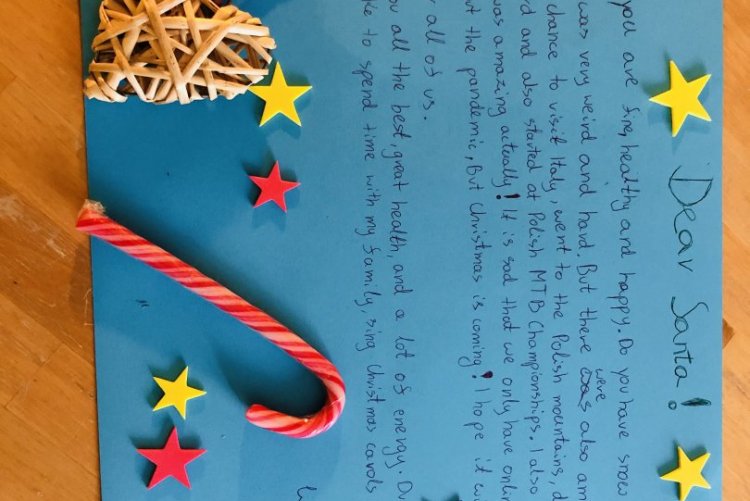 Dear Santa!
you are fine, healthy and happy. Do you have snow
was very weird and hard. But there were also am
chance to visit Italy, went to the Polish mountains, d
rd and also started at Polish MTB Championships. I also
was amazing actually! It is sad that we only have onlin
ut the pandemic, But Christmas is coming! I hope it wi
, all of us.
ou all the best, great health, and a lot of energy. Du
ke to spend time with my family, sing Christmas carols